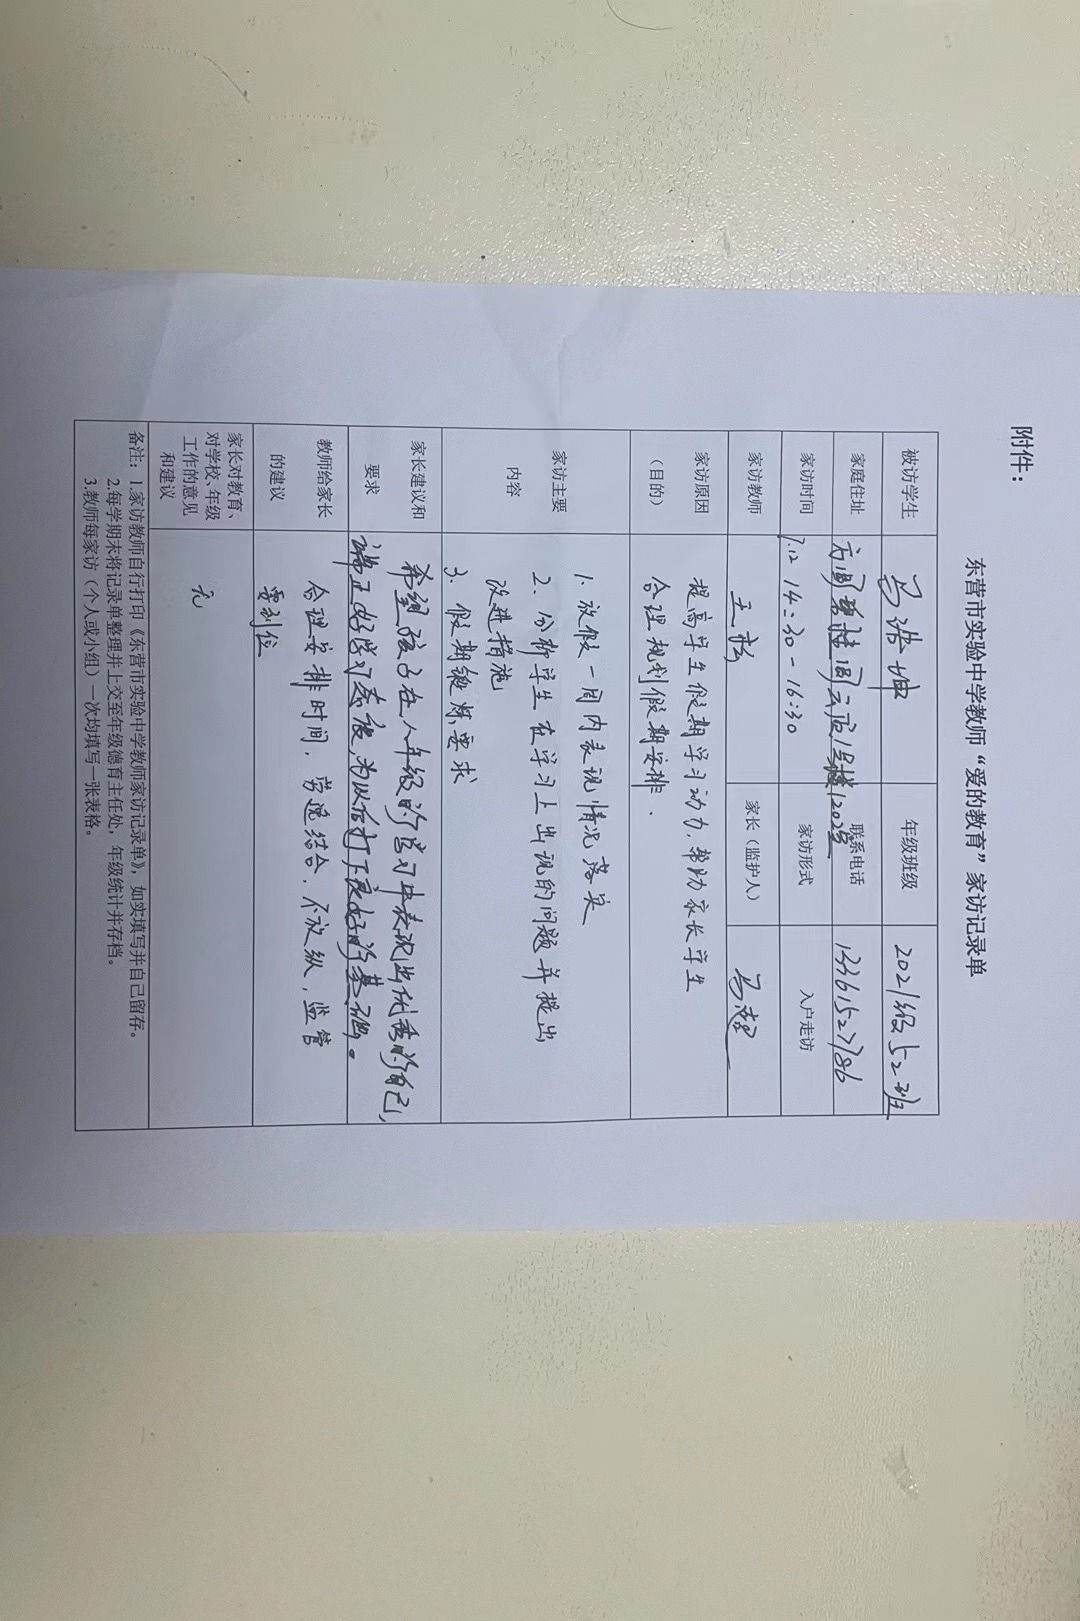 附件：
东营市实验中学教师“爱的教育”家访记录单
被访学生 马浩坤 年级班级 2021级52班
家庭住址 万国碧桂园 1号楼1202室 联系电话 13361527786
家访时间 7.12 14:30-16:30 家访形式 入户走访
家访教师 王 家长（监护人） 马
家访原因
（目的）
提高学生假期学习动力，帮助家长学生
合理规划假期安排.
家访主要
内容
1. 放假一周内表现情况落实
2. 分析学生在学习上出现的问题并提出
改进措施
3. 假期锻炼要求
家长建议和
要求
希望孩子在八年级的学习中表现出优秀的自己，
端正好学习态度，为以后打下良好的基础。
教师给家长
的建议
合理安排时间，劳逸结合，不放纵，监管
要到位
家长对教育、
对学校、年级
工作的意见
和建议
无
备注：1.家访教师自行打印《东营市实验中学教师家访记录单》，如实填写并自己留存。
2.每学期末将记录单整理并上交至年级德育主任处，年级统计并存档。
3.教师每家访（个人或小组）一次均填写一张表格。